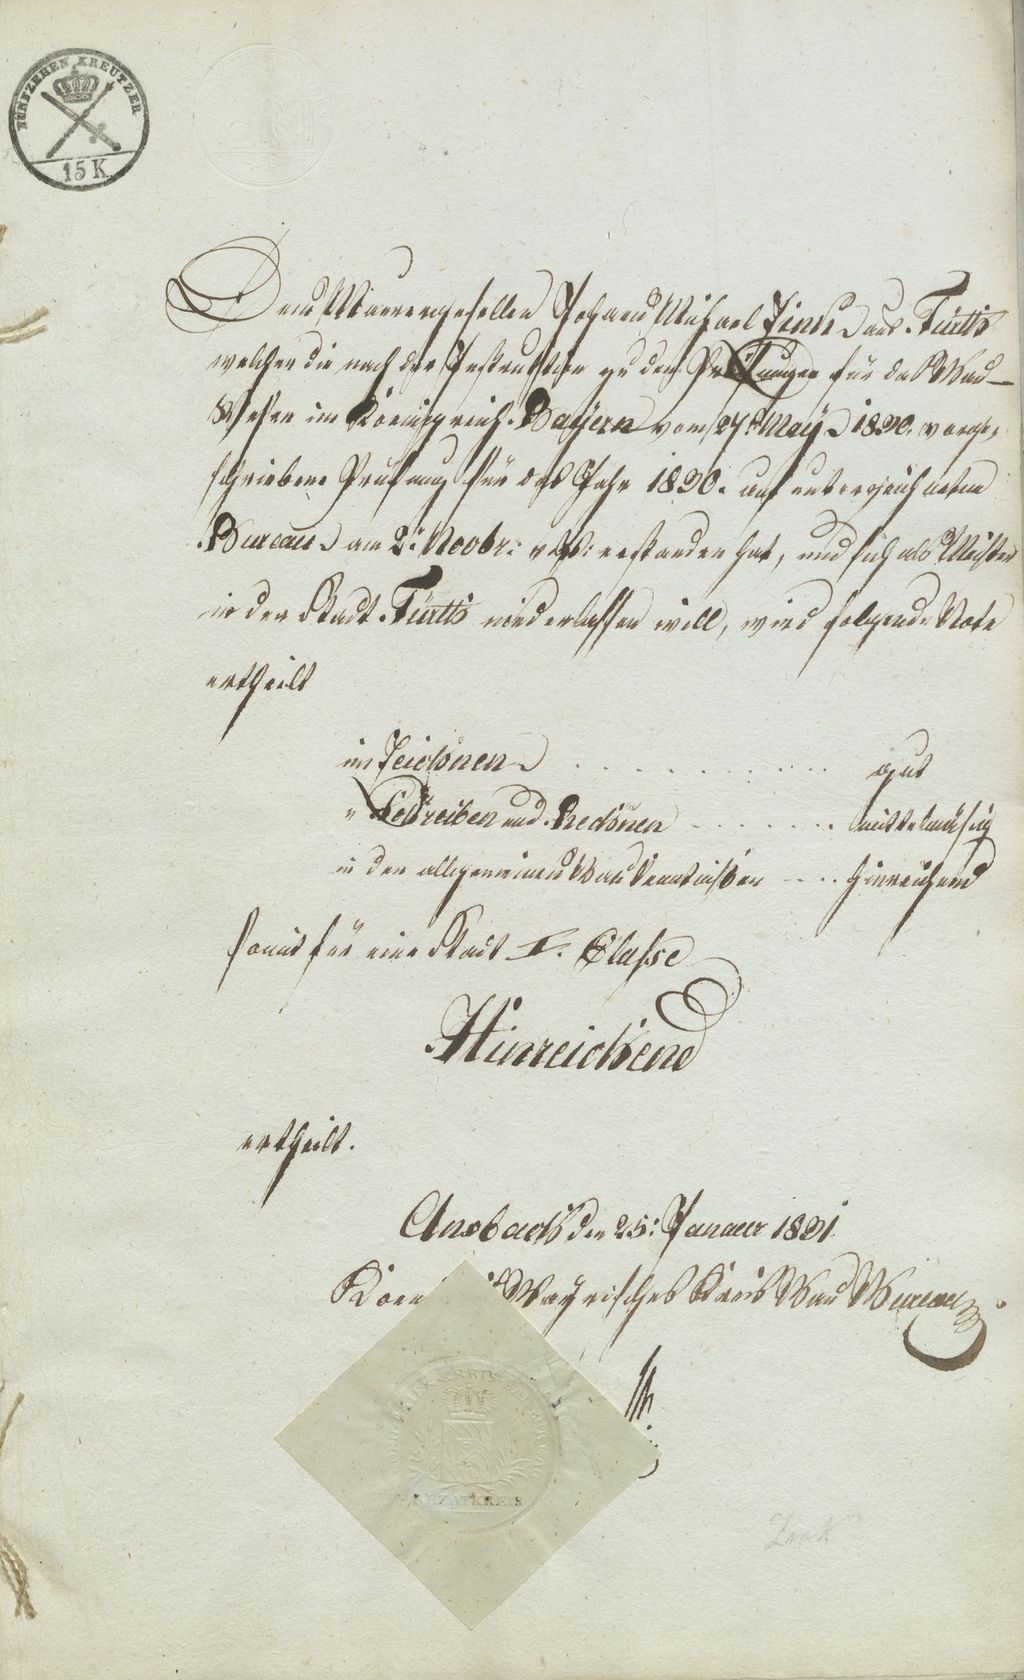 FÜNFZEHEN KREUTZER
15 K
Dem Maurergesellen Johann Michael Zink aus Fürth
welcher die nach der Instruktion zu den Prüfungen für das Bau-
Wesen im Koenigreich Bayern vom 27t. May 1830. vorge-
schriebene Prüfung für das Jahr 1830. am unterzeichneten
Bureau am 2t. Novbr: erstanden hat, und sich als Meister
in der Stadt Fürth niederlassen will, wird folgende Note
ertheilt
im Zeichnen . . . . . . . . . . . gut
" Schreiben und Rechnen . . . . . . . mittelmäsig
in den allgemeinen Baukenntnißen . . . . hinreichend
somit für eine Stadt I. Classe
Hinreichend
ertheilt.
Ansbach den 25: Januar 1831
Koen Bayrisches Kreis Bau Bureau
REZATKREIS
Zink